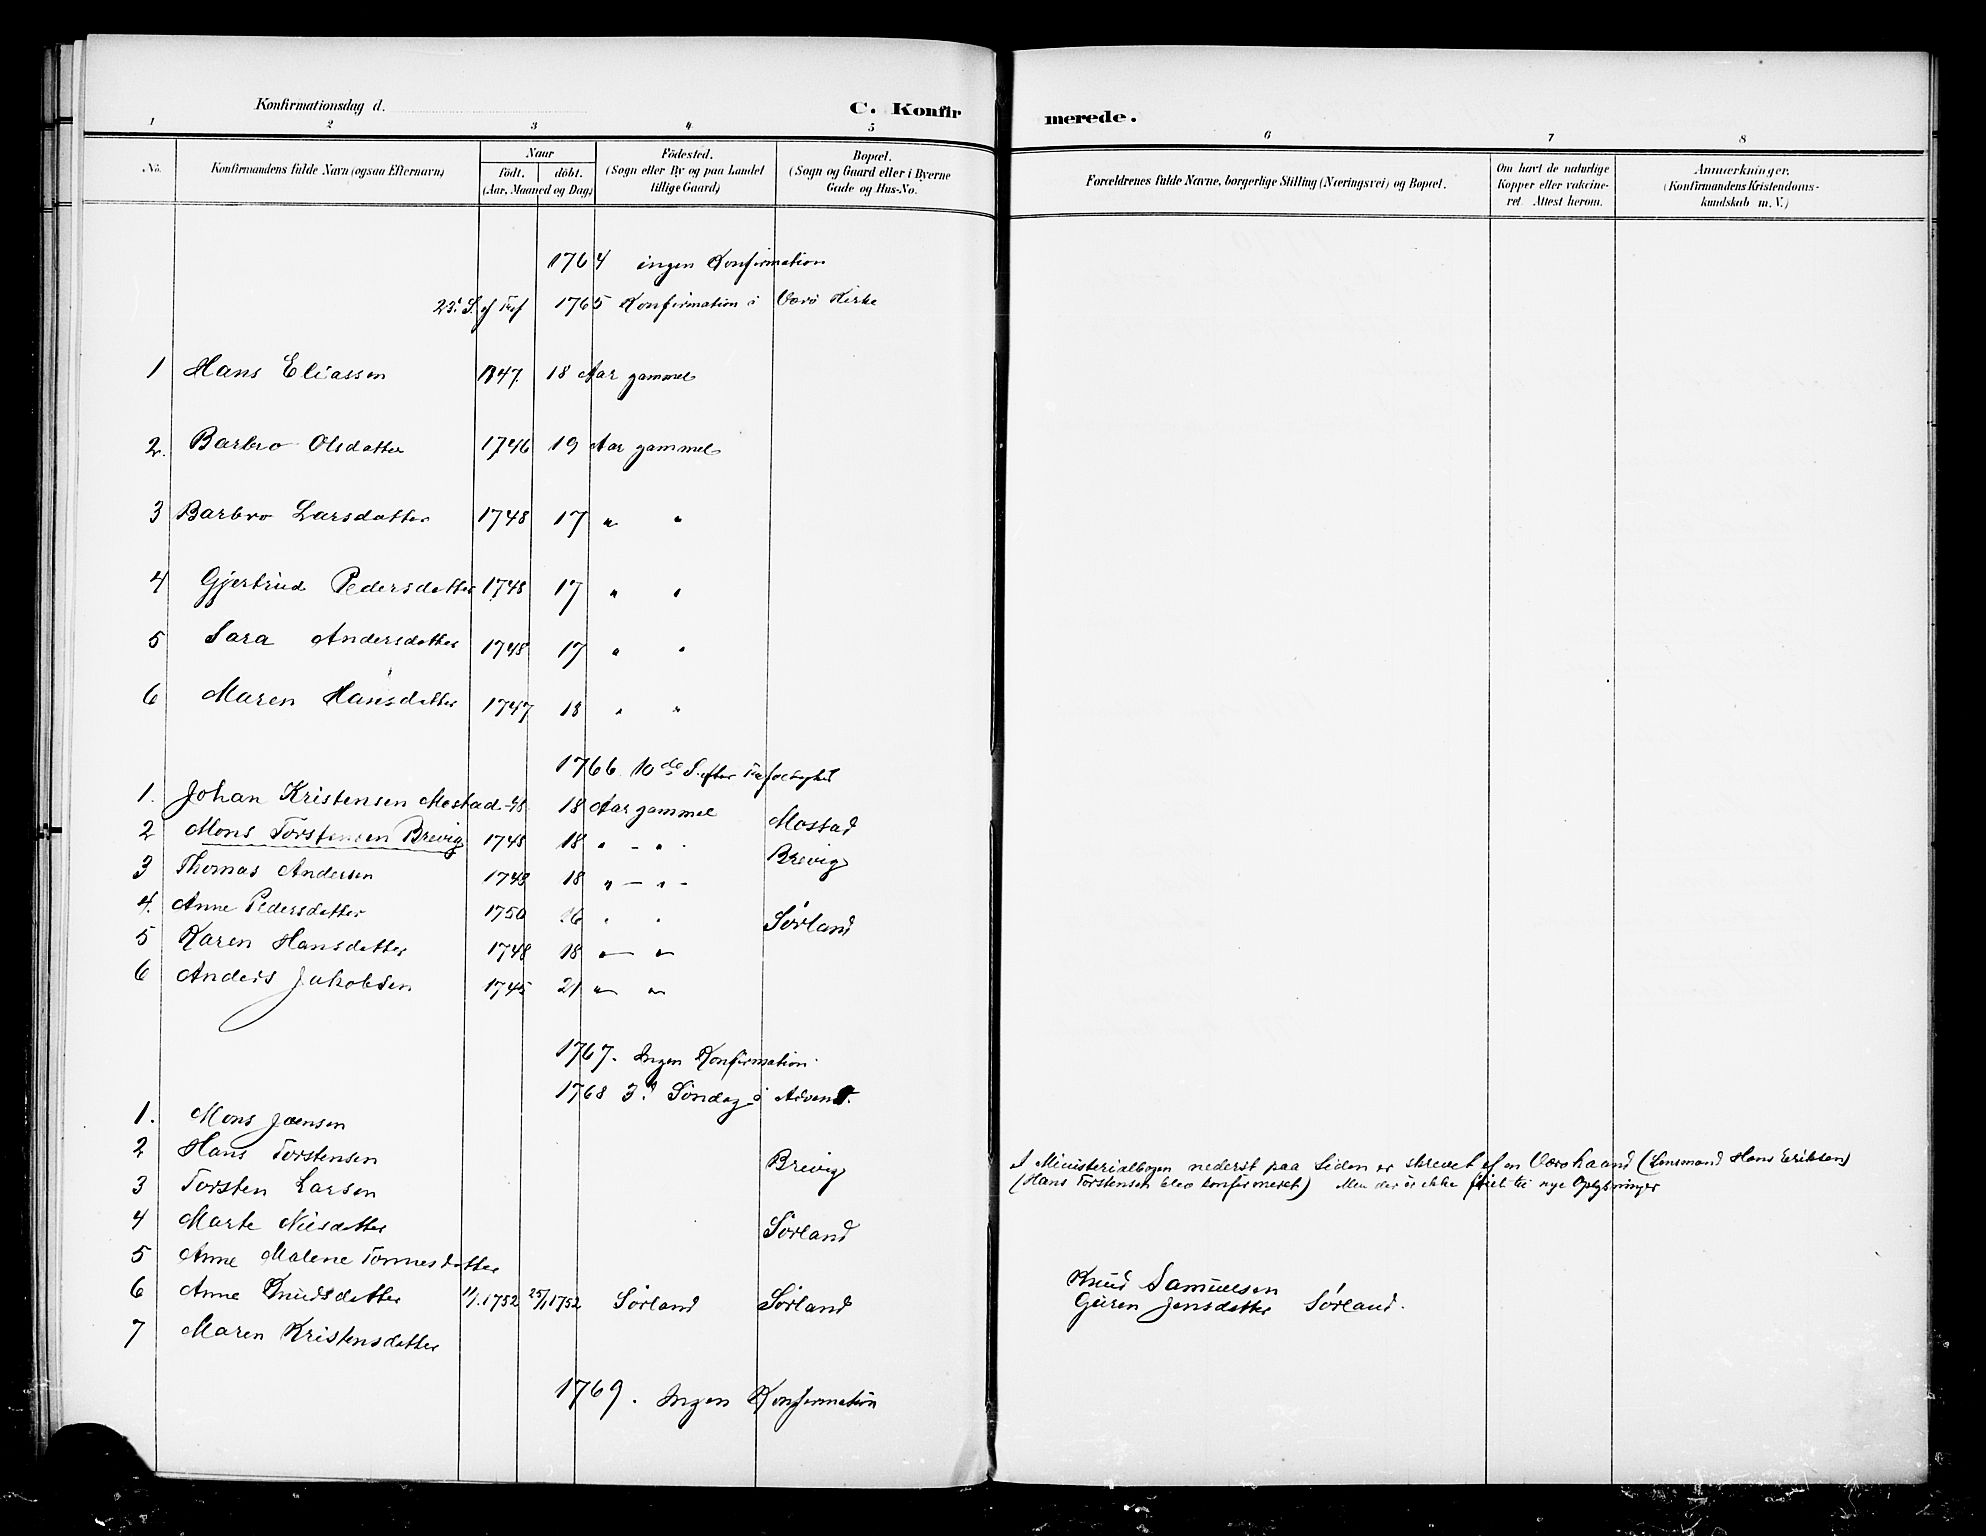 Konfirmationsdag d.
C. Konfir
merede.
1 2 3 4 5 6 7 8
No.
Konfirmandens fulde Navn (ogsaa Efternavn)
Naar
födt. döbt.
(Aar, Maaned og Dag)
Födested.
(Sogn eller By og paa Landet
tillige Gaard)
Bopæl.
(Sogn og Gaard eller i Byerne
Gade og Hus-No.
Forældrenes fulde Navne, borgerlige Stilling (Næringsvei) og Bopæl.
Om havt de naturlige
Kopper eller vakcine-
ret. Attest herom.
Anmærkninger.
(Konfirmandens Kristendoms-
kundskab m. V.)
1764 ingen Konfirmation
23. S. ef Tref 1765 Konfirmation i Værö Kirke
1 Hans Eliassen 1747. 18 Aar gammel
2. Barbro Olsdatter 1746 19 Aar gammel
3 Barbro Larsdatter 1748 17 " "
4 Gjertrud Pedersdatter 1748 17 " "
5 Sara Andersdatter 1748 17 " "
6 Maren Hansdatter 1747 18 " "
1766 10de S. efter Trefoldighet
1. Johan Kristensen Mostad -48 18 Aar gammel Mostad
2 Mons Torstensen Brevig 1748 18 " - " - Brevig
3 Thomas Andersen 1748 18 " - " -
4. Anne Pedersdatter 1750 16 " " Sørland
5 Karen Hansdatter 1748 18 " "
6 Anders Jakobsen 1745 21 " "
1767. Ingen Konfirmation.
1768 3d Söndag i Advent.
1. Mons Joensen
2 Hans Torstensen Brevig
I Ministerialbogen nederst paa Siden er skrevet af en Værøhaand (Lensmand Hans Eriksen)
3 Torsten Larsen
(Hans Torstensen blev konfirmeret) Men der er ikke føiet til nye Oplysninger
4 Marte Nilsdatter Sørland
5 Anne Malene Tonnesdatter
6 Anne Knudsdatter 11/1.1752 25/1 1752 Sørland Sørland
Knud Samuelsen
Guren Jensdatter Sørland.
7 Maren Kristensdatter
1769. Ingen Konfirmation